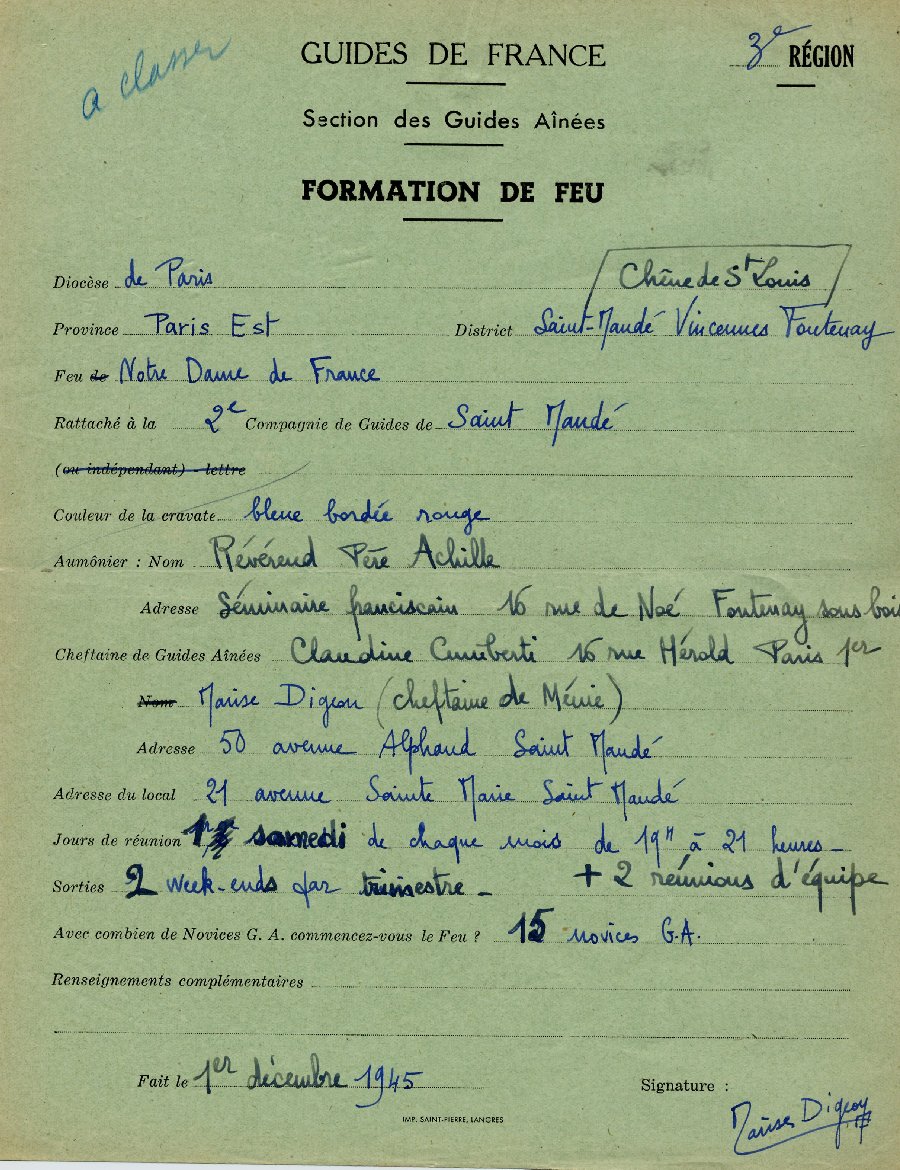 a classer
GUIDES DE FRANCE
3e RÉGION
Section des Guides Aînées
FORMATION DE FEU
Chêne de St Louis
Diocèse de Paris
Province Paris Est District Saint-Mandé Vincennes Fontenay
Feu de Notre Dame de France
Rattaché à la 2e Compagnie de Guides de Saint Mandé
(ou indépendant) - lettre
Couleur de la cravate bleue bordée rouge
Aumônier : Nom Révérend Père Achille
Adresse Séminaire franciscain 16 rue de Noé Fontenay sous bois
Cheftaine de Guides Aînées Claudine Cumberti 16 rue Hérold Paris 1er
Nom Marise Digeon (cheftaine de Ménie)
Adresse 50 avenue Alphand Saint Mandé
Adresse du local 21 avenue Sainte Marie Saint Mandé
Jours de réunion 1er samedi de chaque mois de 19H à 21 heures -
Sorties 2 week-ends par trimestre - + 2 réunions d'équipe
Avec combien de Novices G. A. commencez-vous le Feu ? 15 novices G.A.
Renseignements complémentaires
Fait le 1er décembre 1945 Signature :
Marise Digeon
IMP. SAINT-PIERRE, LANGRES